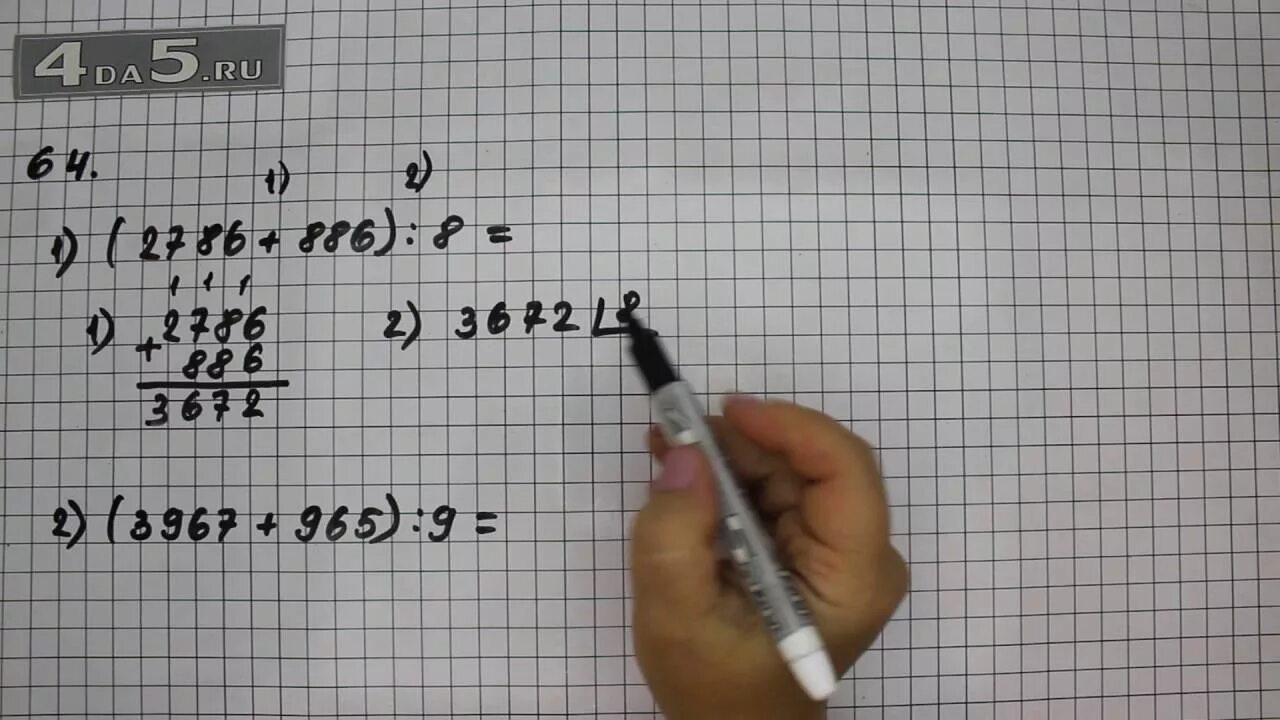 4DA5.RU
64.
1) 2)
1) (2786 + 886) : 8 =
1 1 1
1) 2786
+ 886
3672
2) 3672 8
2) (3967 + 965) : 9 =